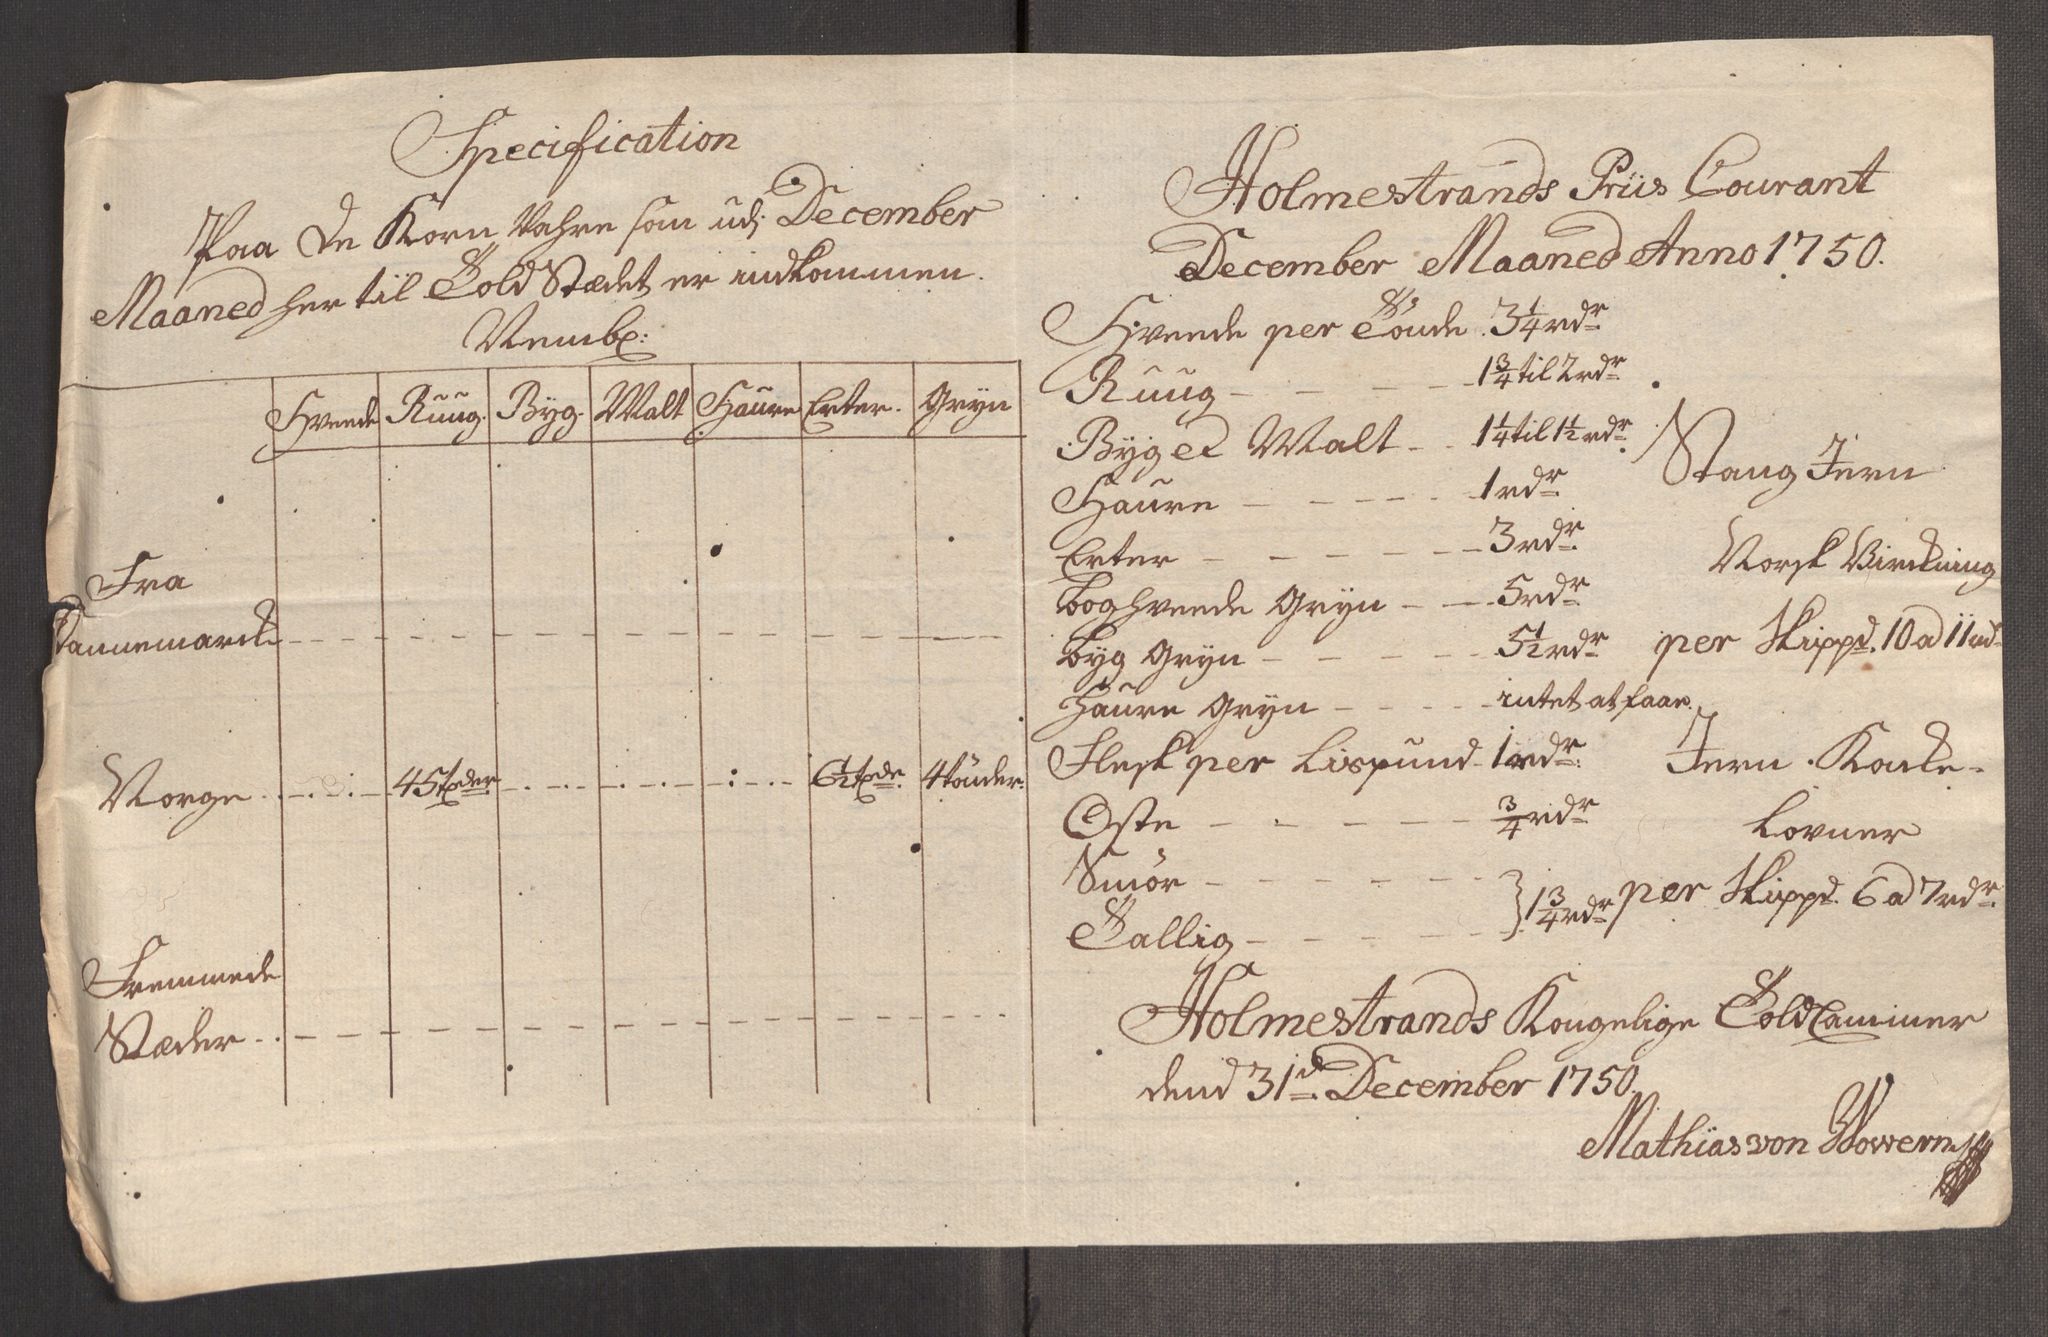 Specification
Paa De Korn Vahre som udj December
Maaned her til Told Stædet er indkommen.
Nembl:
Hveede Ruug. Byg. Malt Haure Erter. Gryn
Fra
Dannemarck
Norge 45 tønder 6½ tønde. 4 tönder.
Fremmede
Stæder
Holmestrands Priis Courant
December Maaned Anno 1750.
Hveede per Tönde 3¼ rdr
Ruug 1¾ til 2 rdr
Byg et Malt 1¼ til 1½ rdr
Haure 1 rdr
Erter 3 rdr
boghveede Gryn 5 rdr
byg Gryn 5½ rdr
haure Gryn intet at faae.
Flesk per Lispund 1 rdr
Oste ¾ rdr
Smör
Tallig } 1¾ rdr
Stang Jern
Norsk Virckning
per Skippd. 10 a 11 rd
Jern Kackel-
Lovner
per Skippd. 6 a 7 rdr
Holmestrands Kongelige Told Cammer
dend 31d December 1750.
Mathias von Wowern